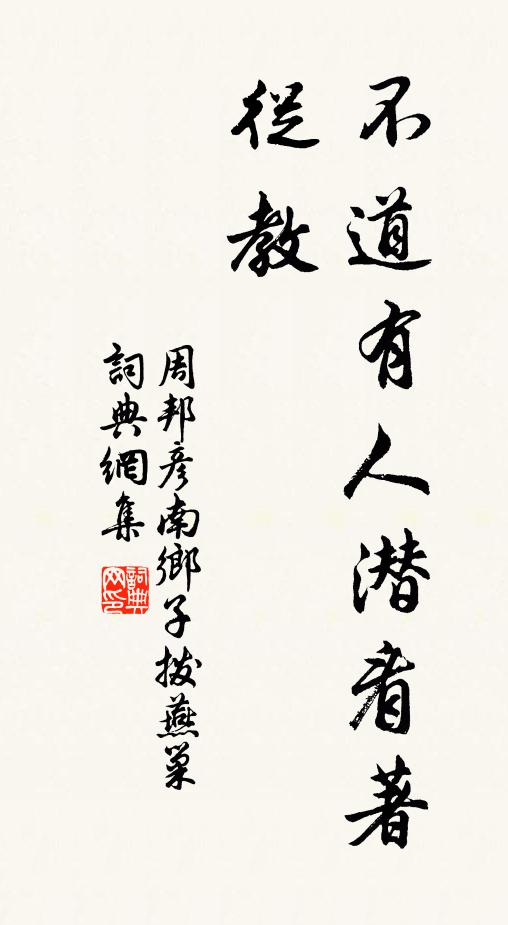 不道有人潜看著
從教
周邦彦南鄉子撥燕巢
詞典網集
詞典
网印